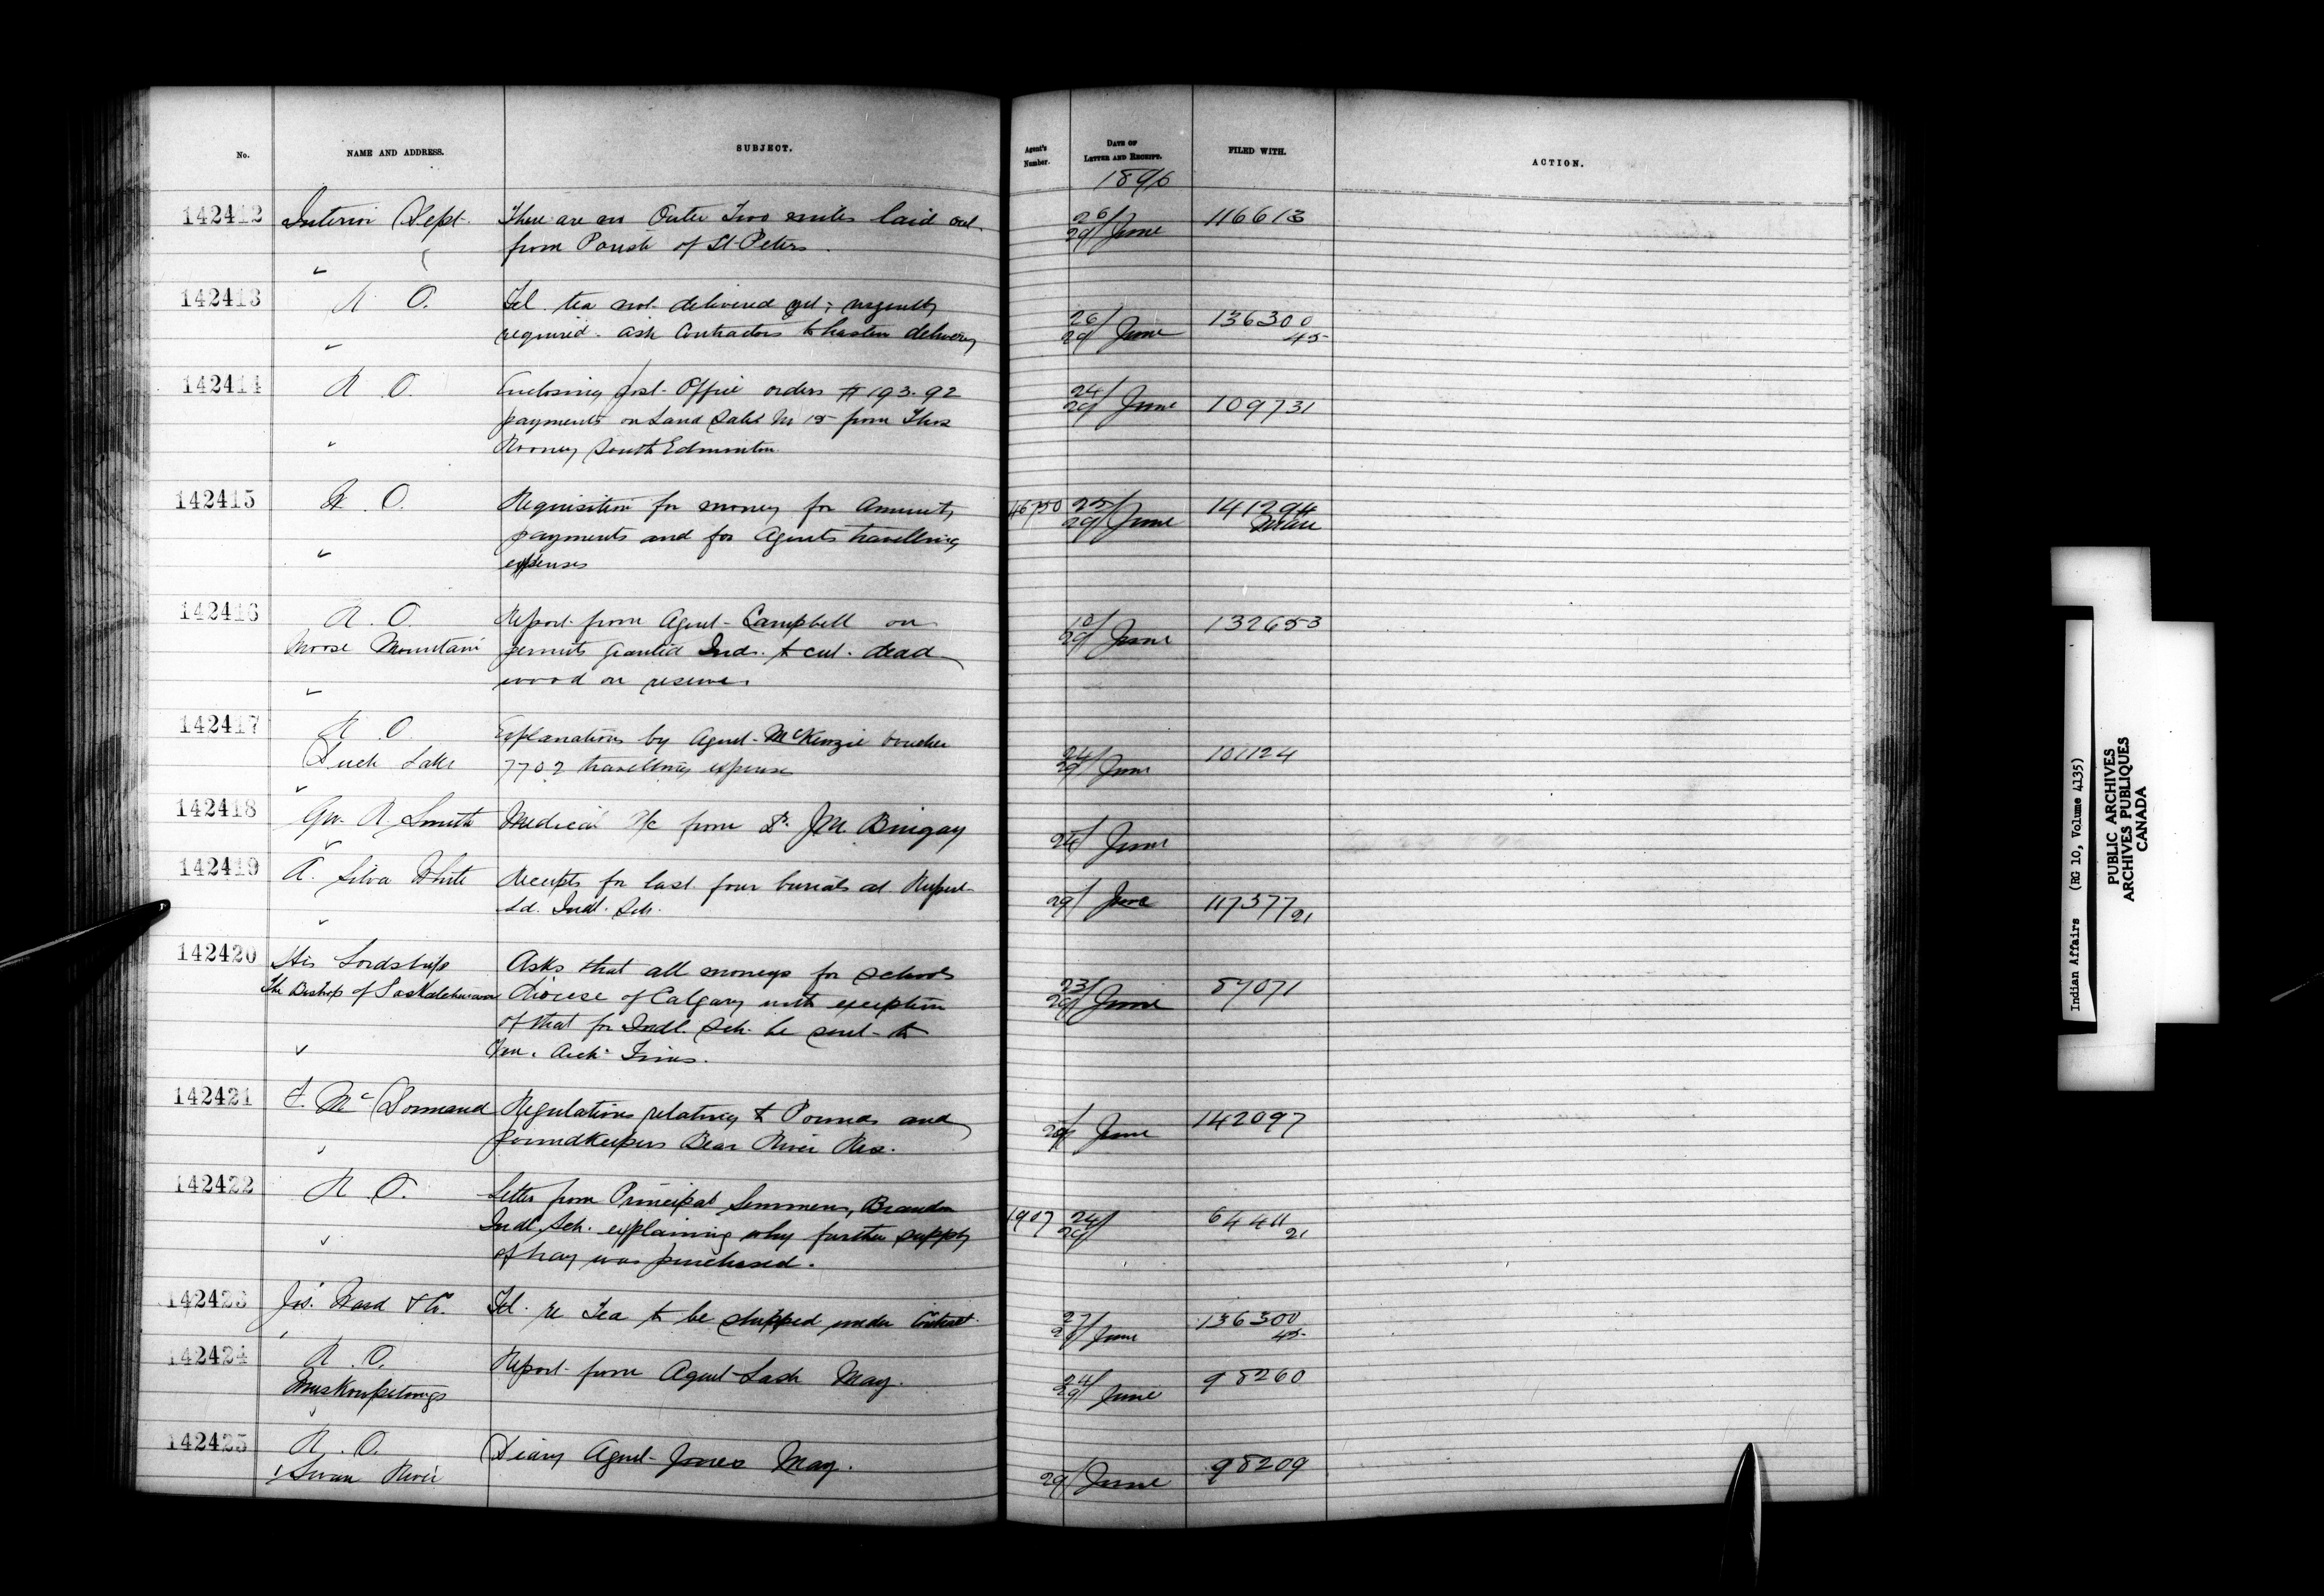 No. NAME AND ADDRESS. SUBJECT. Agent's Number. DATE OF LETTER AND RECEIPT. FILED WITH. ACTION.
1896
142412 Interior Dept. There are no Outer Two miles laid out 26/29 June 116613
from Parish of St Peters.
142413 R. O. Tel. tea not delivered yet; urgently
required. ask Contractors to hasten delivery 26/29 June 136300 45
142414 R. O. Enclosing Post Office orders $193.92 24/29 June 109731
payments on Land Sales No 15 from Thos
Rooney South Edmonton.
142415 R. O. Requisition for money for Annuity 46750 25/29 June 141294
payments and for Agents travelling
expenses
142416 R. O. Report from Agent Campbell on 10/29 June 132653
Moose Mountain permits granted Inds. to cut dead
wood on reserve.
142417 R. O. Explanations by Agent McKenzie voucher
Duck Lake 7702 travelling expenses 24/29 June 101124
142418 Geo. R. Smith Medical a/c from Dr. J.M. 24/ June
142419 A. Silva White Receipts for last four burials at Rupert
Ld. Indl. Sch. 29/ June 117377/21
142420 His Lordship Asks that all moneys for schools
The Bishop of Saskatchewan Diocese of Calgary with exception 23/29 June 87071
of that for Indl. Sch. be sent to
Ven. Arch. Tims.
142421 F. McDormand Regulations relating to Pounds and
poundkeepers Bear River Res. 29/ June 142097
142422 R. O. Letter from Principal Semmens, Brandon
Indl. Sch. explaining why further supply 1907 24/29 64411 21
of hay was purchased.
142423 Jos. Ward & Co. Tel. re Tea to be shipped under Contract. 27/ June 136300 45
142424 R. O. Report from Agent Lash May. 24/29 June 98260
Muskowpetungs
142425 R. O. Diary Agent Jones May.
Swan River 29/ June 98209
Indian Affairs (RG 10, Volume 4135)
PUBLIC ARCHIVES
ARCHIVES PUBLIQUES
CANADA